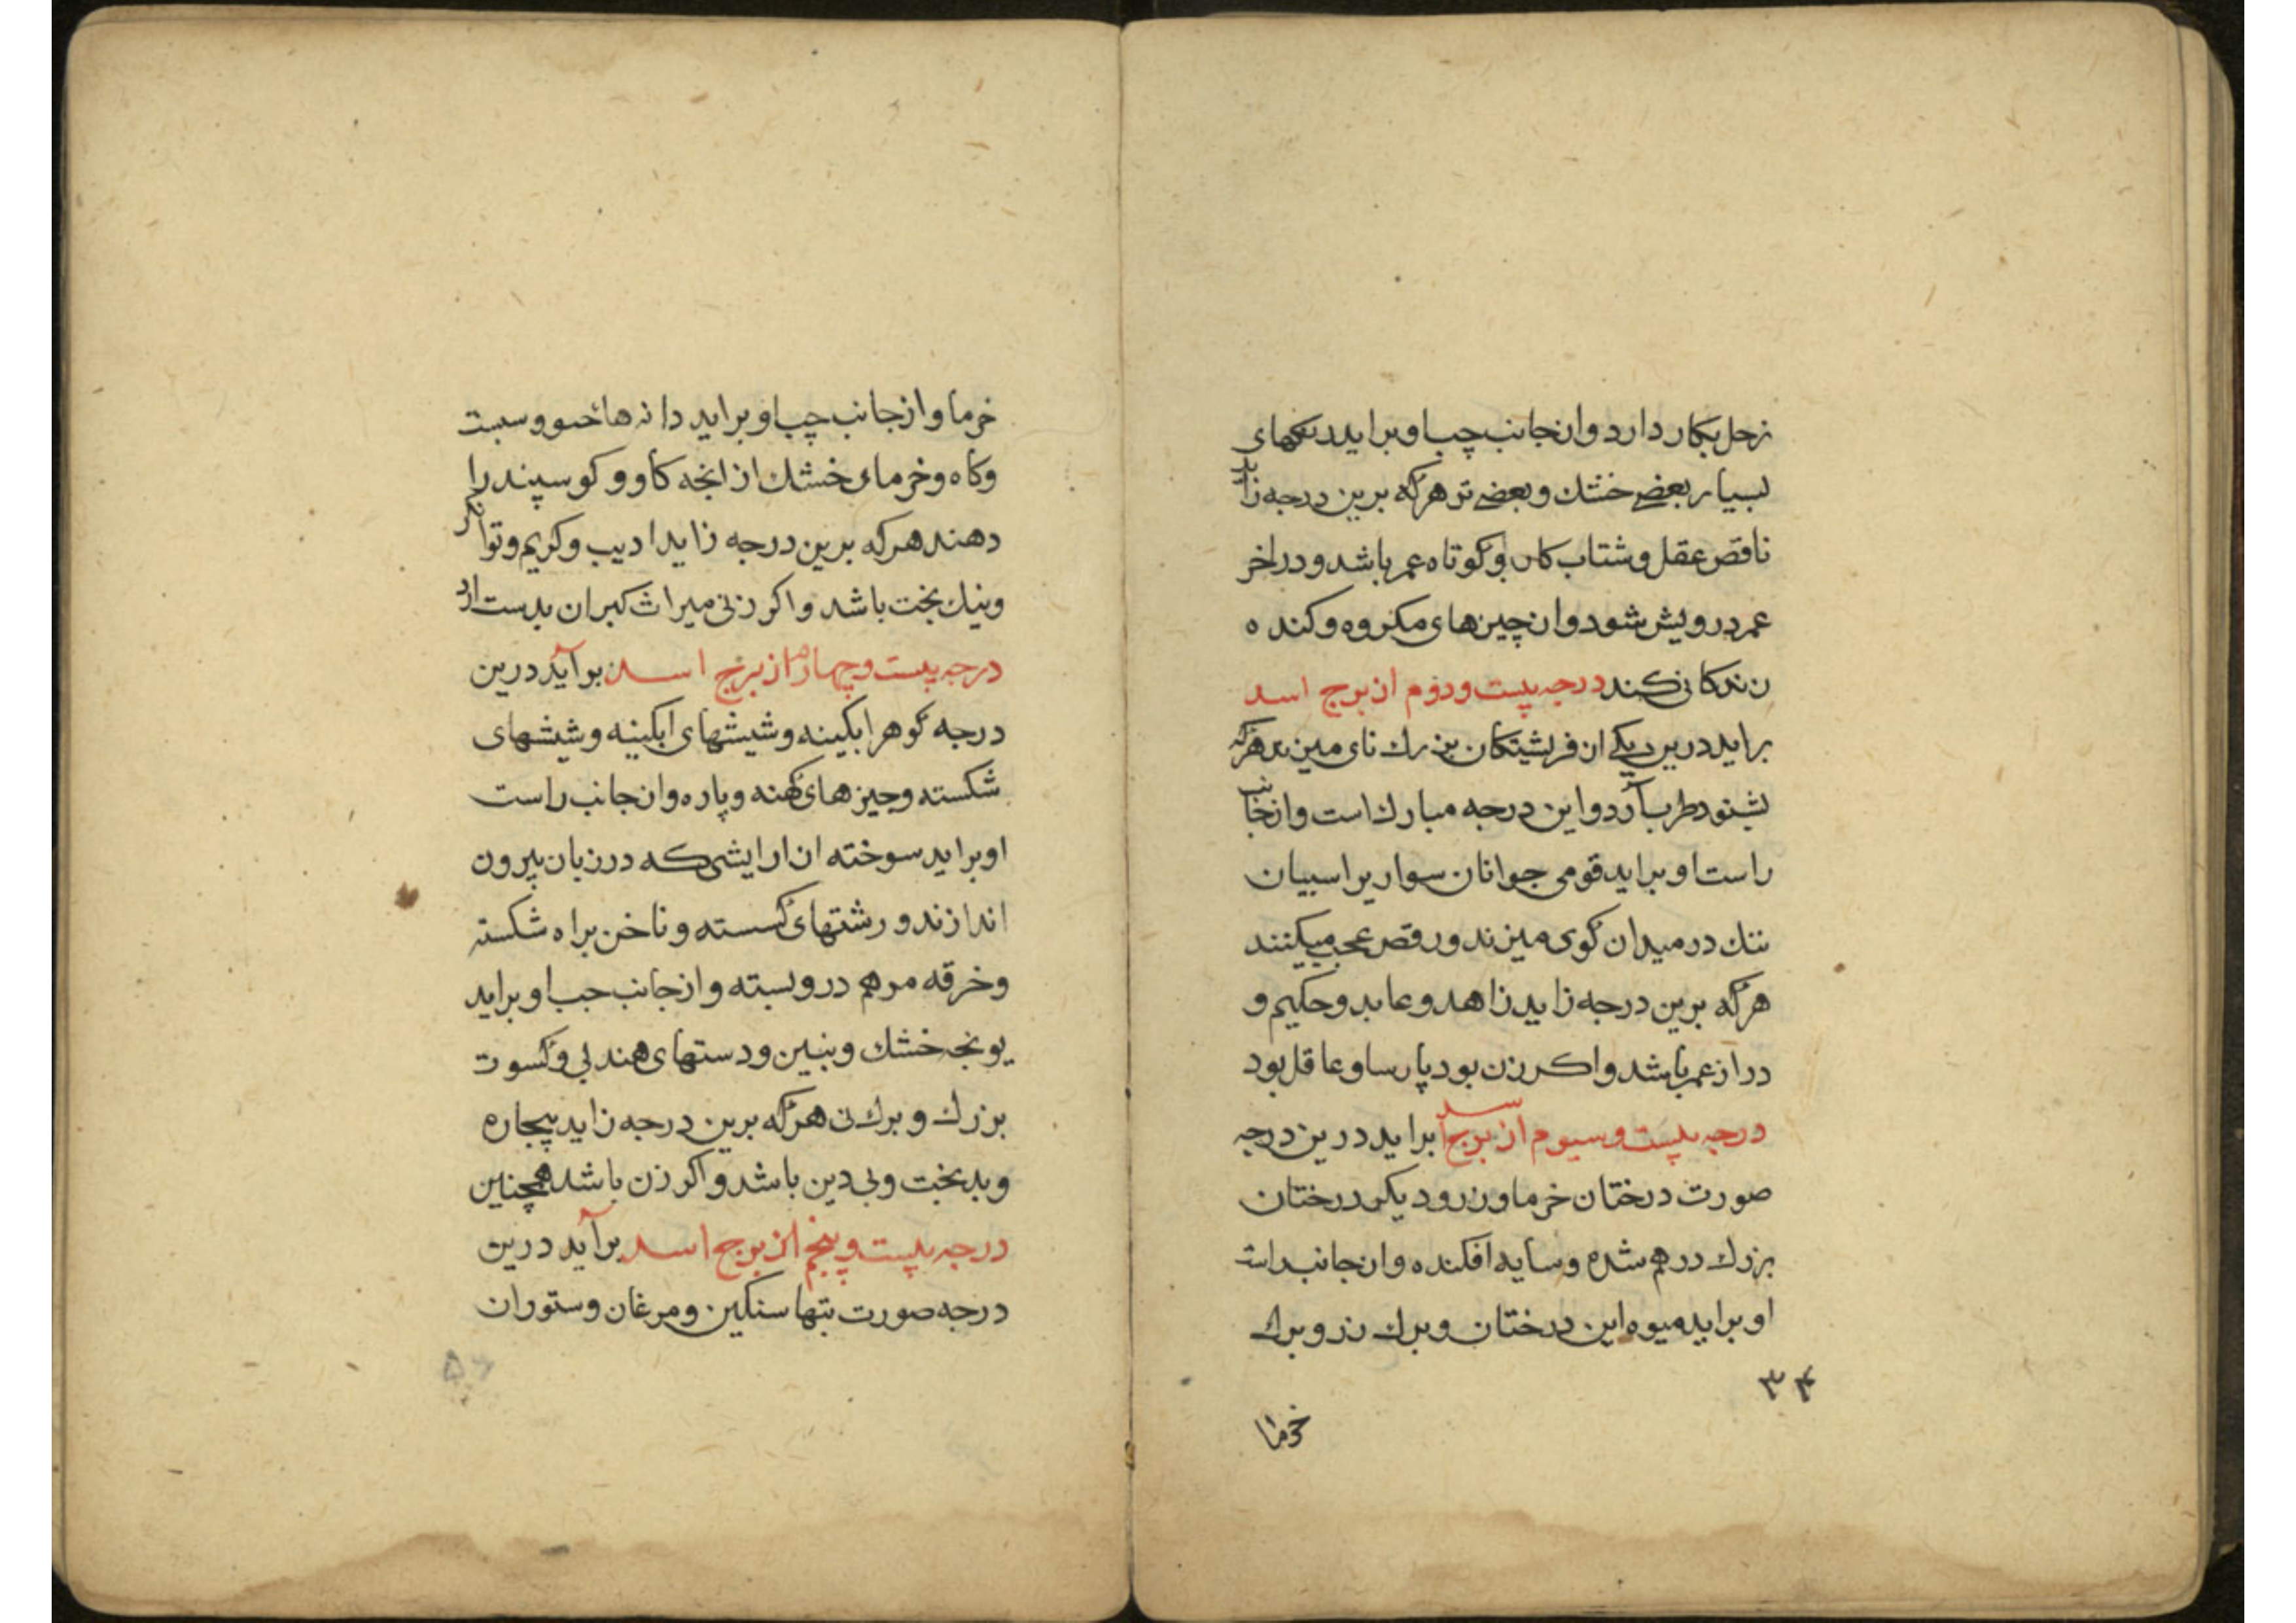 زحل بکار دارد و از جانب چپ او براید
بسیار بعضی خشك و بعضی تر هرکه برین درجه زاید
ناقص عقل و شتاب کار و کوتاه عمر باشد و در اخر
عمر درویش شود و از چیزهای مکروه و کنده
زندکانی کند درجه بیست و دوم از برج اسد
براید درین یکی از فریشتکان بزرك نای میزند هرکه
بشنود طرب آرد و این درجه مبارك است و از جانب
راست او براید قومی جوانان سوار بر اسبیان
تنك در میدان کوی میزند و رقص عجب میکنند
هرکه برین درجه زاید زاهد و عابد و حکیم و
دراز عمر باشد و اکر زن بود پارسا و عاقل بود
درجه بیست و سیوم از برج اسد براید درین درجه
صورت درختان خرما و زرو دیکر درختان
بزرك درهم شده و سایه افکنده و از جانب راست
او براید میوه این درختان و برك رز و برك
۳۴
خرما
خرما و از جانب چپ او براید دانه‌ها و سبست
و کاه و خرمای خشك از انجه کاو و کوسپند را
دهند هرکه برین درجه زاید ادیب و کریم و توانکر
و نیك بخت باشد و اکر زنی میراث کیران بدست ارد
درجه بیست و چهارم از برج اسد برآید درین
درجه کوهر ابکینه و شیشهای ابکینه و شیشهای
شکسته و چیزهای کهنه و پاره و از جانب راست
او براید سوخته از ارایشی که در زبان بیرون
اندازند و رشتهای کسسته و ناخن براه شکسته
و خرقه مرهم درو بسته و از جانب چپ او براید
یونجه خشك و بنبین و دستهای هندبی و کسوت
بزرك و برك نی هرکه برین درجه زاید بیچاره
و بدبخت و بی دین باشد و اکر زن باشد همچنین
درجه بیست و پنجم از برج اسد برآید درین
درجه صورت بتها سنکین و مرغان و ستوران